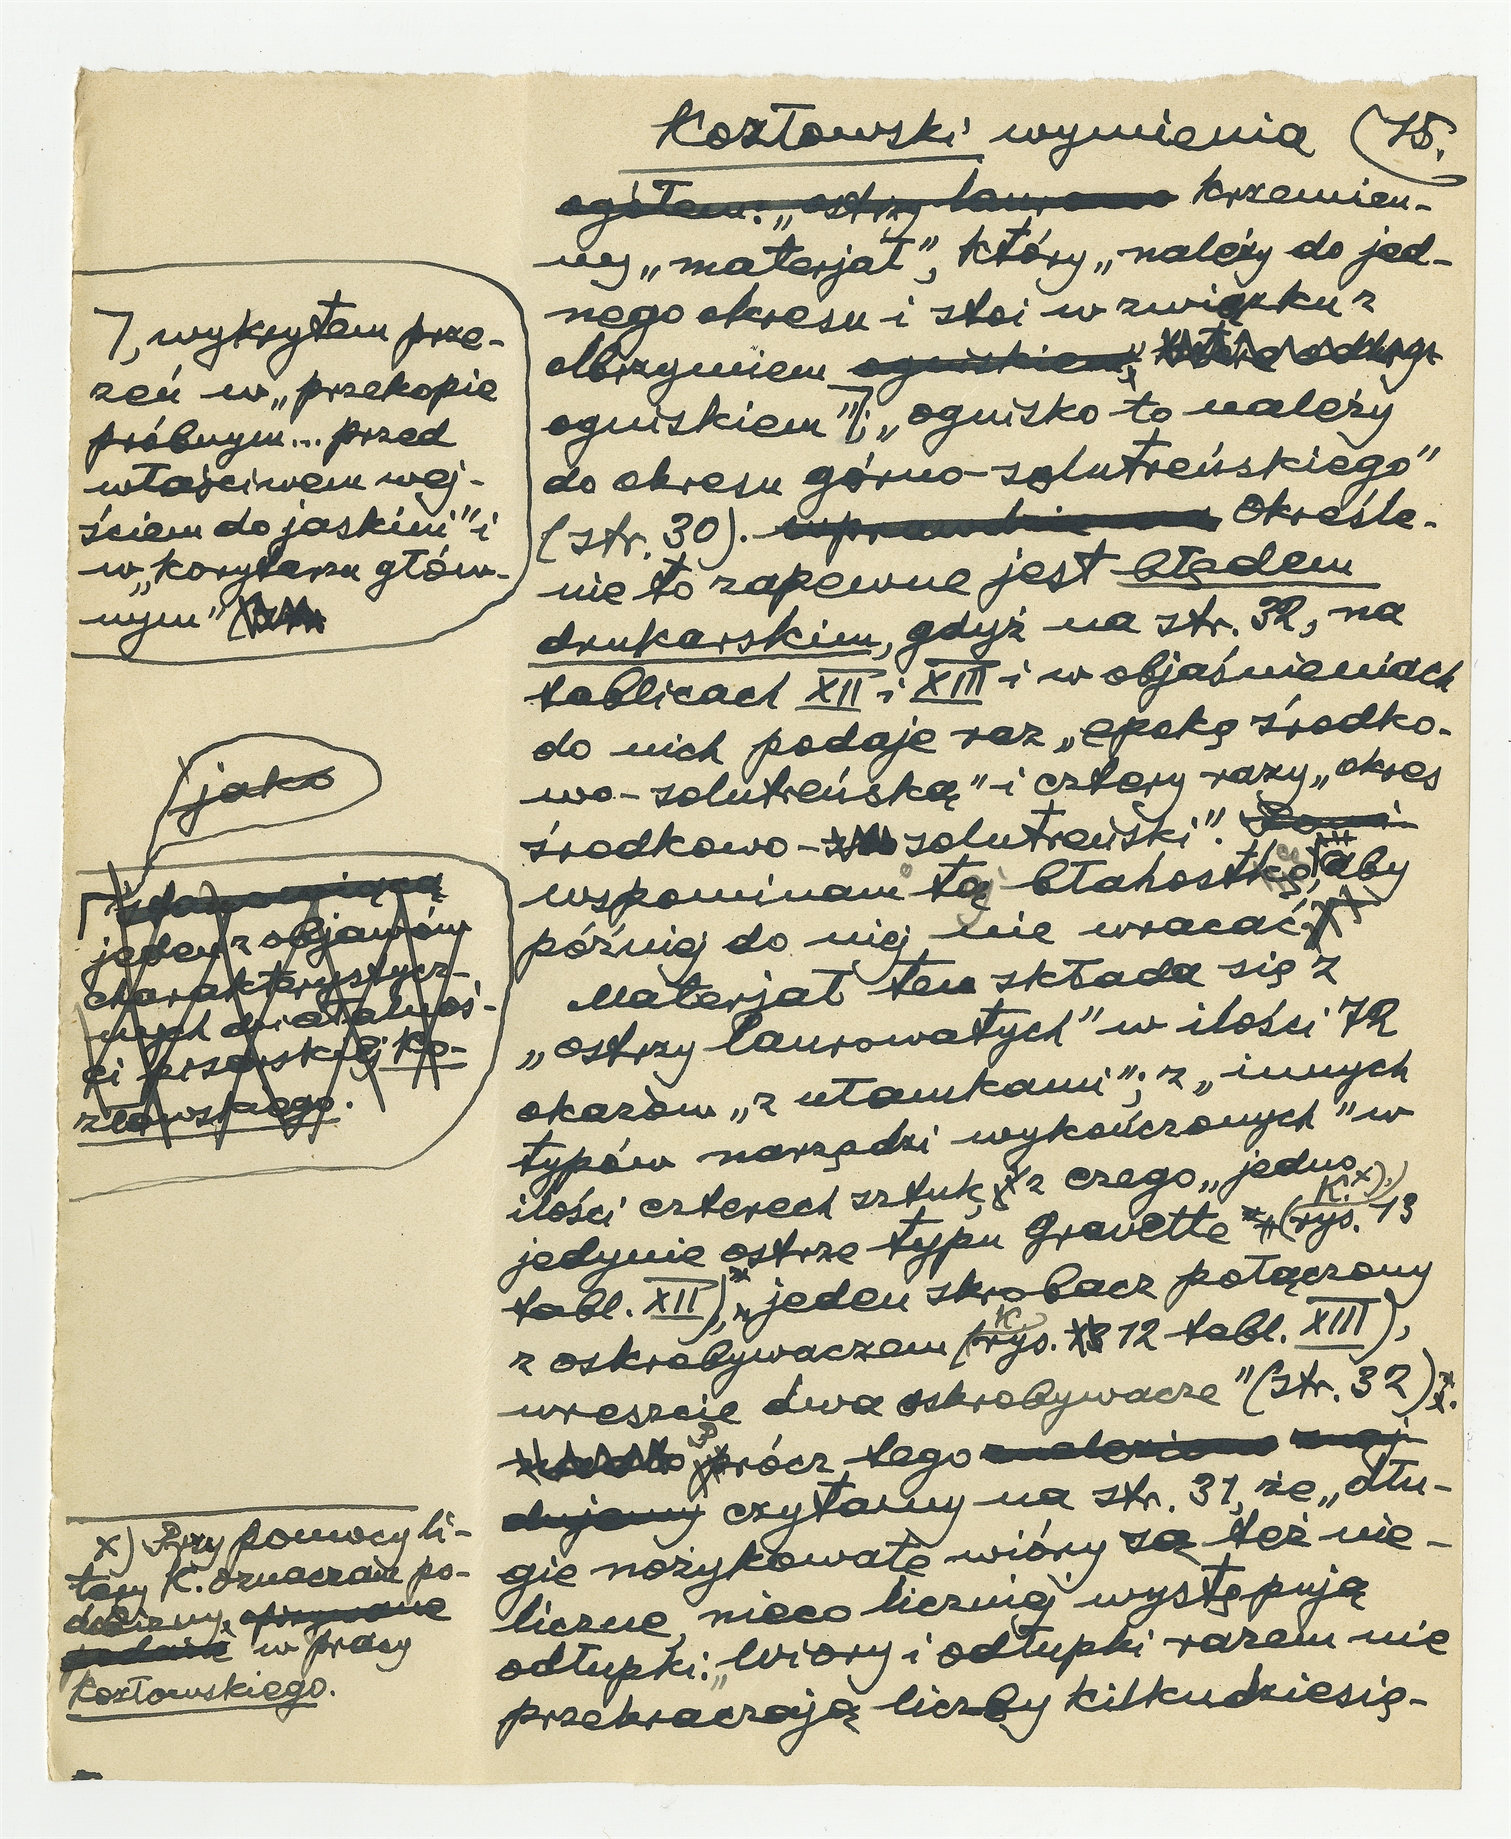 Kozłowski wymienia (75.
ogółem: „ostrzy laurowe krzemien-
ny „materjał”, który „należy do jed-
nego okresu i stoi w związku z
olbrzymiem ogniskiem”,
ogniskiem”⁊; „ognisko to należy
do okresu górno-solutreńskiego”
(str. 30). wprawdzie Określe-
nie to zapewne jest błędem
drukarskim, gdyż na str. 32, na
tablicach XII i XIII i w objaśnieniach
do nich podaje raz „epokę środko-
wo-solutreńską” i cztery razy „okres
środkowo- solutreński”.
wspominam tą błahostkę, aby
później do niej nie wracać.
Materjał ten składa się z
„ostrzy laurowatych” w ilości 72
okazów „z ułamkami”; z „innych
typów narzędzi wykończonych” w
ilości czterech sztuk, z czego „jedno
jedynie ostrze typu Gravette (K.x) rys. 13
tabl. XII), „jeden skrobacz połączony
z oskrobywaczem (K. rys. 12 tabl. XIII),
wreszcie dwa oskrobywacze” (str. 32).
prócz tego znaleziono znaj-
dujemy czytamy na str. 31, że „dłu-
gie nożykowate wióry są też nie-
liczne, nieco liczniej występują
odłupki: „Wióry i odłupki razem nie
przekraczają liczby kilkudziesię-
⁊, wykrytem prze-
zeń w „przekopie
próbnym... przed
właściwem wej-
ściem do jaskini” i
w „korytarzu głów-
nym”
jako
⁊ stanowiącą
jeden z objawów
charakterystycz-
nych działalnoś-
ci pisarskiej Ko-
złowskiego.
x) Przy pomocy li-
tery K. oznaczam po-
dobizny, w pracy
Kozłowskiego.